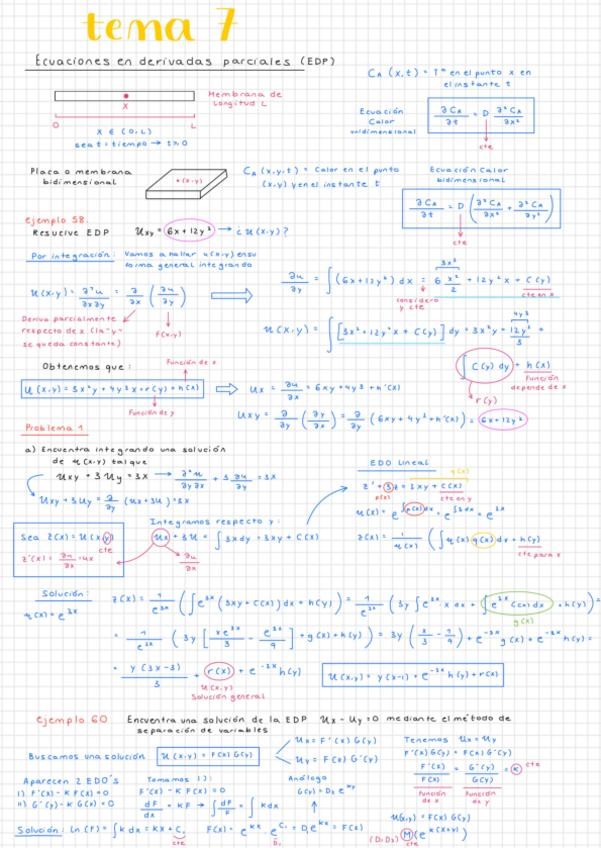 tema 7
Ecuaciones en derivadas parciales (EDP)
Membrana de
longitud L
x
0 L
x ∈ (0,L)
sea t: tiempo → t≥0
C_A (x,t) = Tª en el punto x en
el instante t
Ecuación
Calor
unidimensional
∂C_A/∂t = D ∂²C_A/∂x²
cte
Placa o membrana
bidimensional
(x,y)
C_A (x,y,t) = Calor en el punto
(x,y) y en el instante t
Ecuación Calor
bidimensional
∂C_A/∂t = D (∂²C_A/∂x² + ∂²C_A/∂y²)
cte
ejemplo 58.
Resuelve EDP Uxy = 6x + 12y² → ¿u(x,y)?
Por integración: Vamos a hallar u(x,y) en su
forma general integrando
u(x,y) = ∂²u/∂x∂y = ∂/∂x (∂u/∂y)
Deriva parcialmente
respecto de x (la "y"
se queda constante)
F(x,y)
∂u/∂y = ∫(6x+12y²) dx = 6 x²/2 + 12y²x + C(y)
3x²
considero
y cte
cte en x
u(x,y) = ∫[3x²+12y²x + C(y)] dy = 3x²y + 12y³/3 +
4y³
∫C(y) dy + h(x)
Función
depende de x
r(y)
Obtenemos que:
Función de x
u(x,y) = 3x²y + 4y³x + r(y) + h(x)
Función de y
Ux = ∂u/∂x = 6xy + 4y³ + h'(x)
Uxy = ∂/∂y (∂y/∂x) = ∂/∂y (6xy + 4y³ + h'(x)) = 6x+12y²
Problema 1
a) Encuentra integrando una solución
de u(x,y) tal que
Uxy + 3Uy = 3x → ∂²u/∂y∂x + 3 ∂u/∂y = 3x
Uxy + 3Uy = ∂/∂y (Ux+3U) = 3x
Sea z(x) = u(x,y)
cte
z'(x) = ∂u/∂x = ux
Integramos respecto y:
Ux + 3U = ∫3x dy = 3xy + C(x)
∂u/∂x
EDO lineal
q(x)
z' + 3z = 3xy + C(x)
p(x) cte en y
u(x) = e^∫p(x)dx = e^∫3dx = e^3x
z(x) = 1/u(x) (∫u(x) q(x) dx + h(y))
cte para x
Solución:
u(x) = e^3x
z(x) = 1/e^3x (∫e^3x (3xy + C(x)) dx + h(y)) = 1/e^3x (3y ∫e^3x x dx + ∫e^3x C(x) dx + h(y)) =
g(x)
= 1/e^3x (3y [xe^3x/3 − e^3x/9] + g(x) + h(y)) = 3y (x/3 − 1/9) + e^-3x g(x) + e^-3x h(y) =
= y(3x−3)/3 + r(x) + e^-3x h(y)
u(x,y)
Solución general
u(x,y) = y(x−1) + e^-3x h(y) + r(x)
ejemplo 60 Encuentra una solución de la EDP Ux − Uy = 0 mediante el método de
separación de variables
Buscamos una solución u(x,y) = F(x) G(y)
Ux = F'(x) G(y)
Uy = F(x) G'(y)
Tenemos Ux = Uy
F'(x) G(y) = F(x) G'(y)
F'(x)/F(x) = G'(y)/G(y) = K cte
Función
de x
Función
de y
Aparecen 2 EDO's
I) F'(x) − K F(x) = 0
II) G'(y) − K G(x) = 0
Tomamos I):
F'(x) − K F(x) = 0
dF/dx = KF → ∫dF/F = ∫K dx
Análogo
G(y) = D₂ e^Ky
Solución: Ln (F) = ∫K dx = Kx + C₁
cte
F(x) = e^Kx · e^C₁ = D₁ e^Kx = F(x)
D₁
u(x,y) = F(x) G(y)
(D₁D₂) M(e^K(x+y))
cte